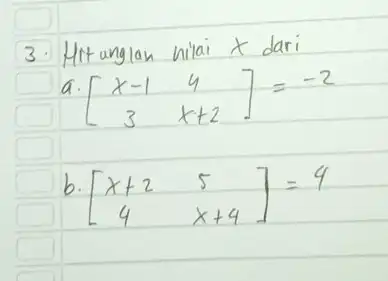 3. Hitunglan nilai x dari
a. [ x-1 4 ] = -2
3 x+2
b. [ x+2 5 ] = 4
4 x+4